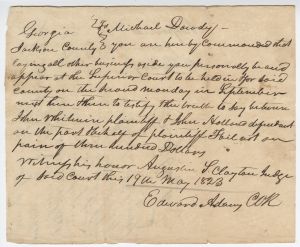 To Michael Dowdy —
Georgia
Jackson County } you are hereby Commanded that
laying all other business aside you personally be and
appear at the Superior Court to be held in for said
county on the second monday in September
next then & there to testify the truth to say between
John Whitmire plaintiff & John Holland defendant
on the part & behalf of plaintiff fail not on
pain of three hundred Dollars
Witness his honor Augustin S Clayton Judge
of said Court this 19th May 1823
Edward Adams Clk